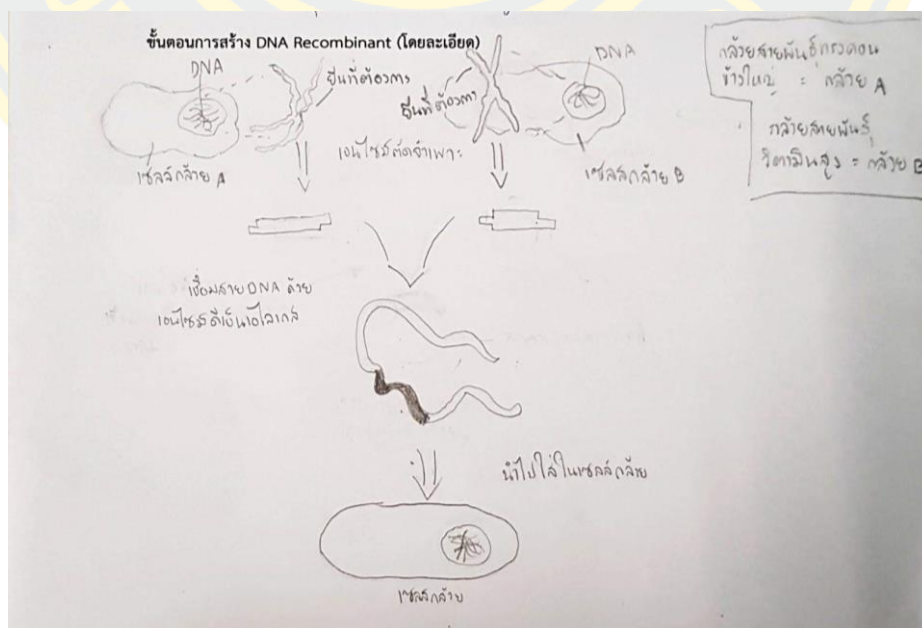 ขั้นตอนการสร้าง DNA Recombinant (โดยละเอียด)
DNA
ยีนที่ต้องการ
เซลล์กล้วย A
DNA
ยีนที่ต้องการ
เซลล์กล้วย B
เอนไซม์ตัดจำเพาะ
กล้วยสายพันธุ์
ข้าวใหญ่ = กล้วย A
กล้วยสายพันธุ์
วิตามินสูง = กล้วย B
เชื่อมสาย DNA ด้วย
เอนไซม์ดีเอ็นเอไลเกส
นำไปใส่ในเซลล์กล้วย
เซลล์กล้วย